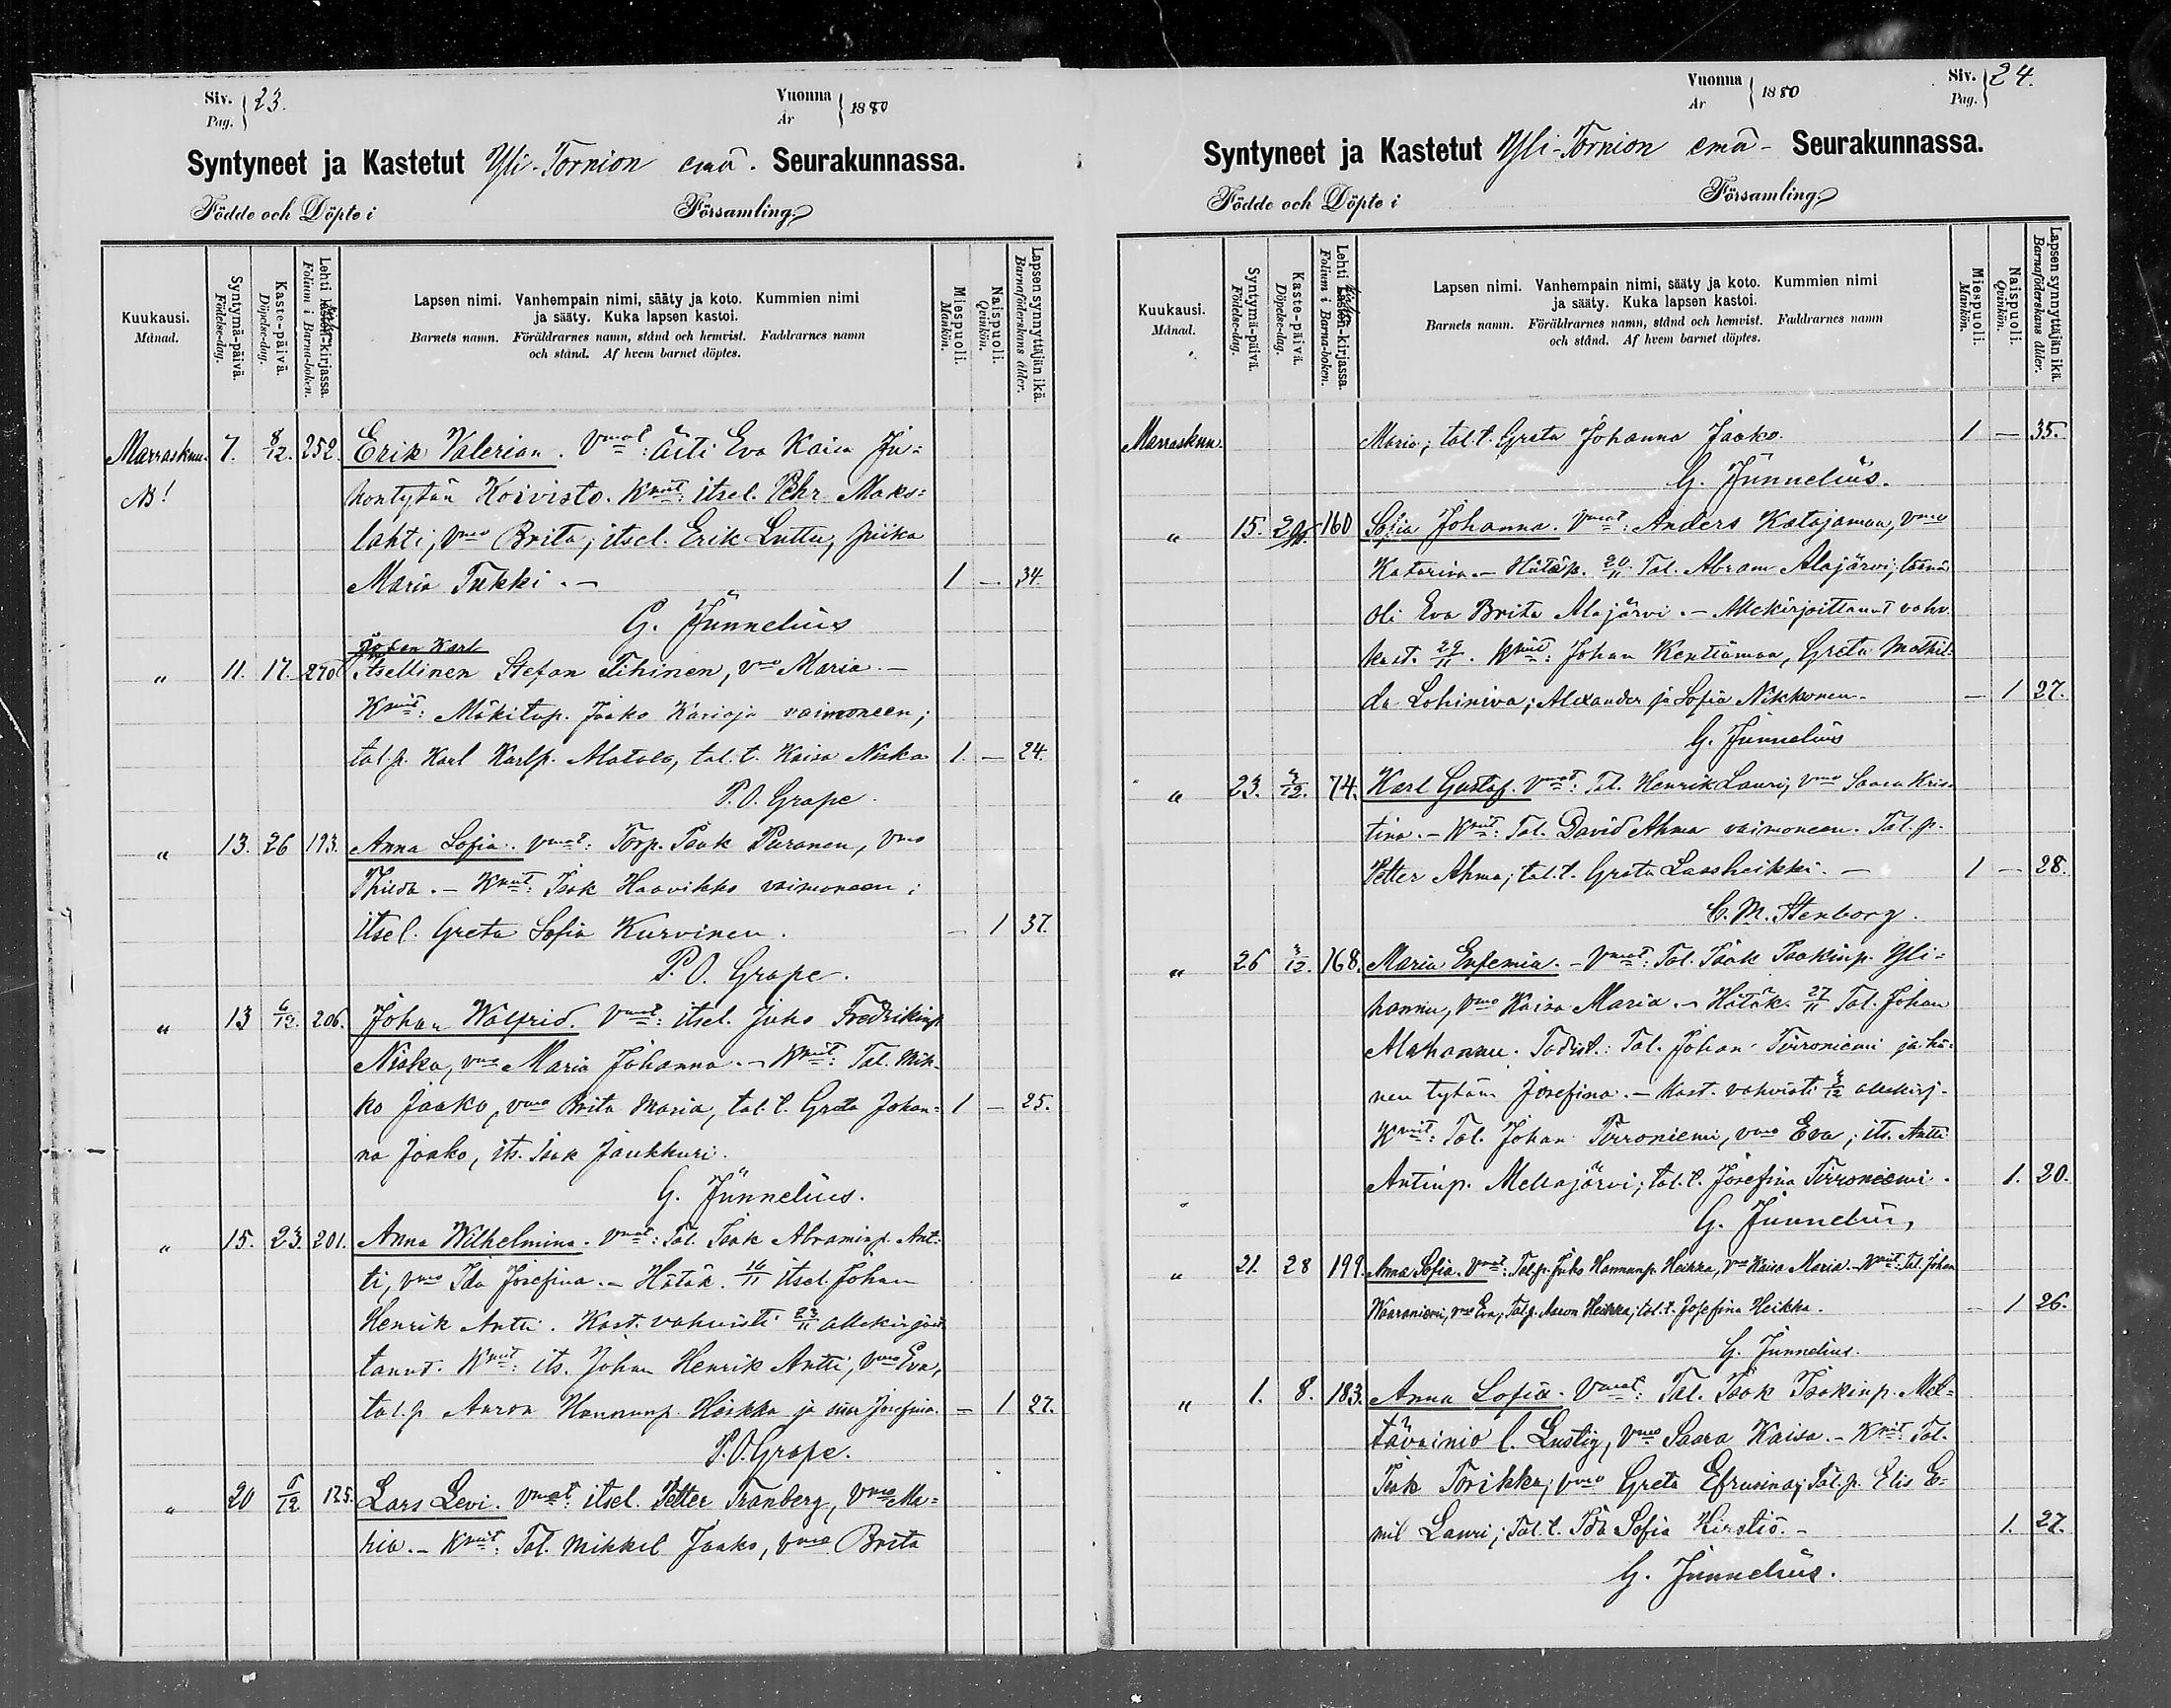 Siv. Pag. } 23.
Vuonna År } 1880
Syntyneet ja Kastetut Yli-Tornion emä- Seurakunnassa.
Födde och Döpte i Församling.
Kuukausi. Månad.
Syntymä-päivä. Födelse-dag.
Kaste-päivä. Döpelse-dag.
Lehti lasten-kirjassa. Folium i Barna-boken.
Lapsen nimi. Vanhempain nimi, sääty ja koto. Kummien nimi
ja sääty. Kuka lapsen kastoi.
Barnets namn. Föräldrarnes namn, stånd och hemvist. Faddrarnes namn
och stånd. Af hvem barnet döptes.
Miespuoli. Mankön.
Naispuoli. Qvinkön.
Lapsen synnyttäjän ikä. Barnaföderskans ålder.
Marraskuu. 7. 8/12. 252. Erik Valerian. Vmat: Äiti Eva Kaisa Ju=
NB! hontytär Koivisto. Kmit: itsel. Pehr Maks=
lahti, vmo Brita; itsel. Erik Luttu, piika
Maria Tukki. — 1 — 34.
G. Jünnelius
Johan Karl
" 11. 17. 270 Itsellinen Stefan Tihinen, vmo Maria. —
Kmit: Mäkitup. Jaako Karioja vaimoneen;
tal.p. Karl Karlp. Matala, tal.t. Kaisa Niska 1. — 24.
P. O. Grape.
" 13. 26 193. Anna Sofia. Vmat: Torp. Isak Puranen, vmo
Thilda. — Kmit: Isak Haavikko vaimoneen;
itsel. Greta Sofia Kurvinen. — 1 37.
P. O. Grape.
" 13 6/12. 206. Johan Walfrid. Vmat: itsel. Juho Fredrikinp.
Niska, vmo Maria Johanna. — Kmit: Tal. Mik-
ko Jaako, vmo Brita Maria, tal.t. Greta Johan= 1 — 25.
na Jaako, its. Isak Jaukkuri.
G. Jünnelius.
" 15. 23. 201. Anna Wilhelmina. Vmat: Tal. Isak Abraminp. Ant=
ti, vmo Ida Josefina. — Hätäk. 16/11 itsel. Johan
Henrik Antti. Kast. vahvisti 23/11 allekirjoit-
tanut. Kmit: its. Johan Henrik Antti, vmo Eva,
tal.p Aaron Hannunp. Heikka ja sisar Josefina. — 1 27.
P. O. Grape.
" 20 5/12 125. Lars Levi. Vmat: itsel. Petter Tranberg, vmo Ma=
ria. — Kmit: Tal. Mikkel Jaako, vmo Brita
Vuonna År } 1880
Siv. Pag. } 24.
Syntyneet ja Kastetut Yli-Tornion emä- Seurakunnassa.
Födde och Döpte i Församling.
Kuukausi. Månad.
Syntymä-päivä. Födelse-dag.
Kaste-päivä. Döpelse-dag.
Lehti Lasten-kirjassa. Folium i Barna-boken.
Lapsen nimi. Vanhempain nimi, sääty ja koto. Kummien nimi
ja sääty. Kuka lapsen kastoi.
Barnets namn. Föräldrarnes namn, stånd och hemvist. Faddrarnes namn
och stånd. Af hvem barnet döptes.
Miespuoli. Mankön.
Naispuoli. Qvinkön.
Lapsen synnyttäjän ikä. Barnaföderskans ålder.
Marraskuu. Maria; tal.t. Greta Johanna Jaako. 1 — 35.
G. Jünnelius.
" 15. 160 Sofia Johanna. Vmat: Anders Katajamaa, vmo
Katarina. — Hätäk. 20/11. Tal. Abram Alajärvi; läsnä
oli Eva Brita Alajärvi. — Allekirjoittanut vahv.
kast. 29/11. Kmit: Johan Kenttämaa, Greta Mathil-
da Lohiniva; Alexander ja Sofia Nikkonen. — 1 27.
G. Jünnelius
" 23. 3/12. 74. Karl Gustaf. Vmat: Tal. Henrik Lauri, vmo Saara Kris-
tina. — Kmit: Tal. David Ahma vaimoneen. Tal.p.
Petter Ahma; tal.t. Greta Lassheikki. — 1 — 28.
C. M. Stenborg.
" 26 3/12. 168. Maria Eufemia. — Vmat: Tal. Isak Isakinp. Yli=
hannu, vmo Kaisa Maria. — Hätäk. 27/11 Tal. Johan
Alahannu. Todist.: Tal. Johan Tirroniemi ja hä-
nen tytär Josefina. — Kast. vahvisti 3/12 allekirj.
Kmit: Tal. Johan Tirroniemi, vmo Eva; its. Antti
Antinp. Mellajärvi; tal.t. Josefina Tirroniemi. 1. 20.
G. Jünnelius,
" 21. 28 199. Anna Sofia. Vmat: Talp. Juho Hannunp. Heikka, vmo Kaisa Maria. — Kmit: Tal. Johan
Waaraniemi, vmo Eva; Talp. Aaron Heikka; tal.t. Josefina Heikka. — 1 26.
G. Jünnelius.
" 1. 8. 183. Anna Sofia. Vmat: Tal. Isak Isakinp. Met=
tävainio l. Lustig, vmo Saara Kaisa. — Kmit: Tal.
Isak Torikka, vmo Greta Efrusina; Tal.p. Elis E=
mil Lauri; Tal.t. Ida Sofia Hirstiö. — 1. 27.
G. Jünnelius.